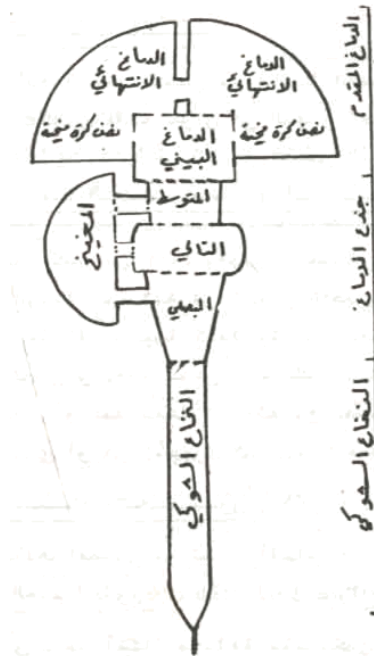 الدماغ
الانتهائي
نصف كرة مخية
الدماغ
الانتهائي
نصف كرة مخية
الدماغ
البيني
المتوسط
المخيخ
التالي
البصلي
النخاع الشوكي
الدماغ المقدم
جذع الدماغ
النخاع الشوكي